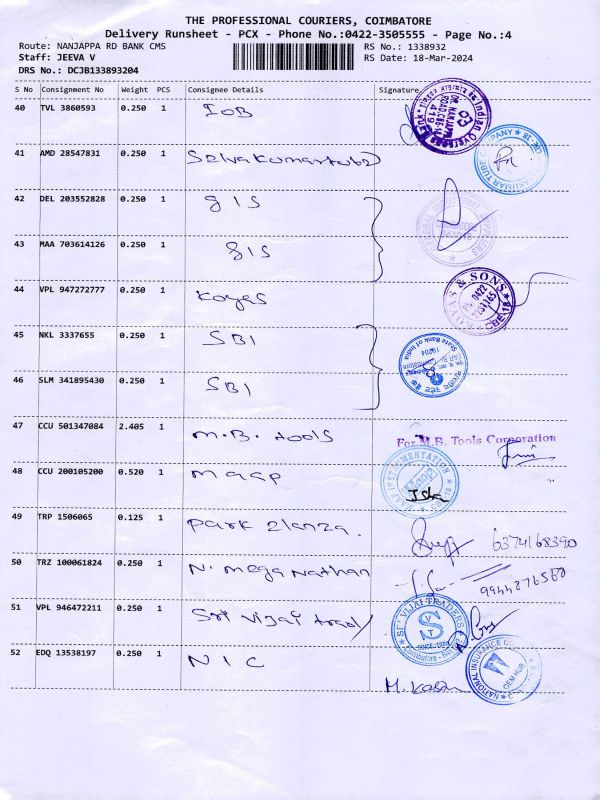 THE PROFESSIONAL COURIERS, COIMBATORE
Delivery Runsheet - PCX - Phone No.:0422-3505555 - Page No.:4
Route: NANJAPPA RD BANK CMS
RS No.: 1338932
Staff: JEEVA V
RS Date: 18-Mar-2024
DRS No.: DCJB133893204
S No Consignment No Weight PCS Consignee Details Signature
40 TVL 3860593 0.250 1 IOB
41 AMD 28547831 0.250 1
42 DEL 203552828 0.250 1 GIS
43 MAA 703614126 0.250 1 GIS
44 VPL 947272777 0.250 1 Koyas
KOYAS & SONS
45 NKL 3337655 0.250 1 SBI
State Bank of India
46 SLM 341895430 0.250 1 SBI
47 CCU 501347084 2.405 1 M.B. tools
For M.B. Tools Corporation
48 CCU 200105200 0.520 1 maap
49 TRP 1506065 0.125 1 Park
6374168390
50 TRZ 100061824 0.250 1 N. meganathan
9944276560
51 VPL 946472211 0.250 1 Sri Vijai
SRI VIJAI TRADERS
SINCE
Coimbatore
52 EDQ 13538197 0.250 1 NIC
NATIONAL INSURANCE
OEM HUB